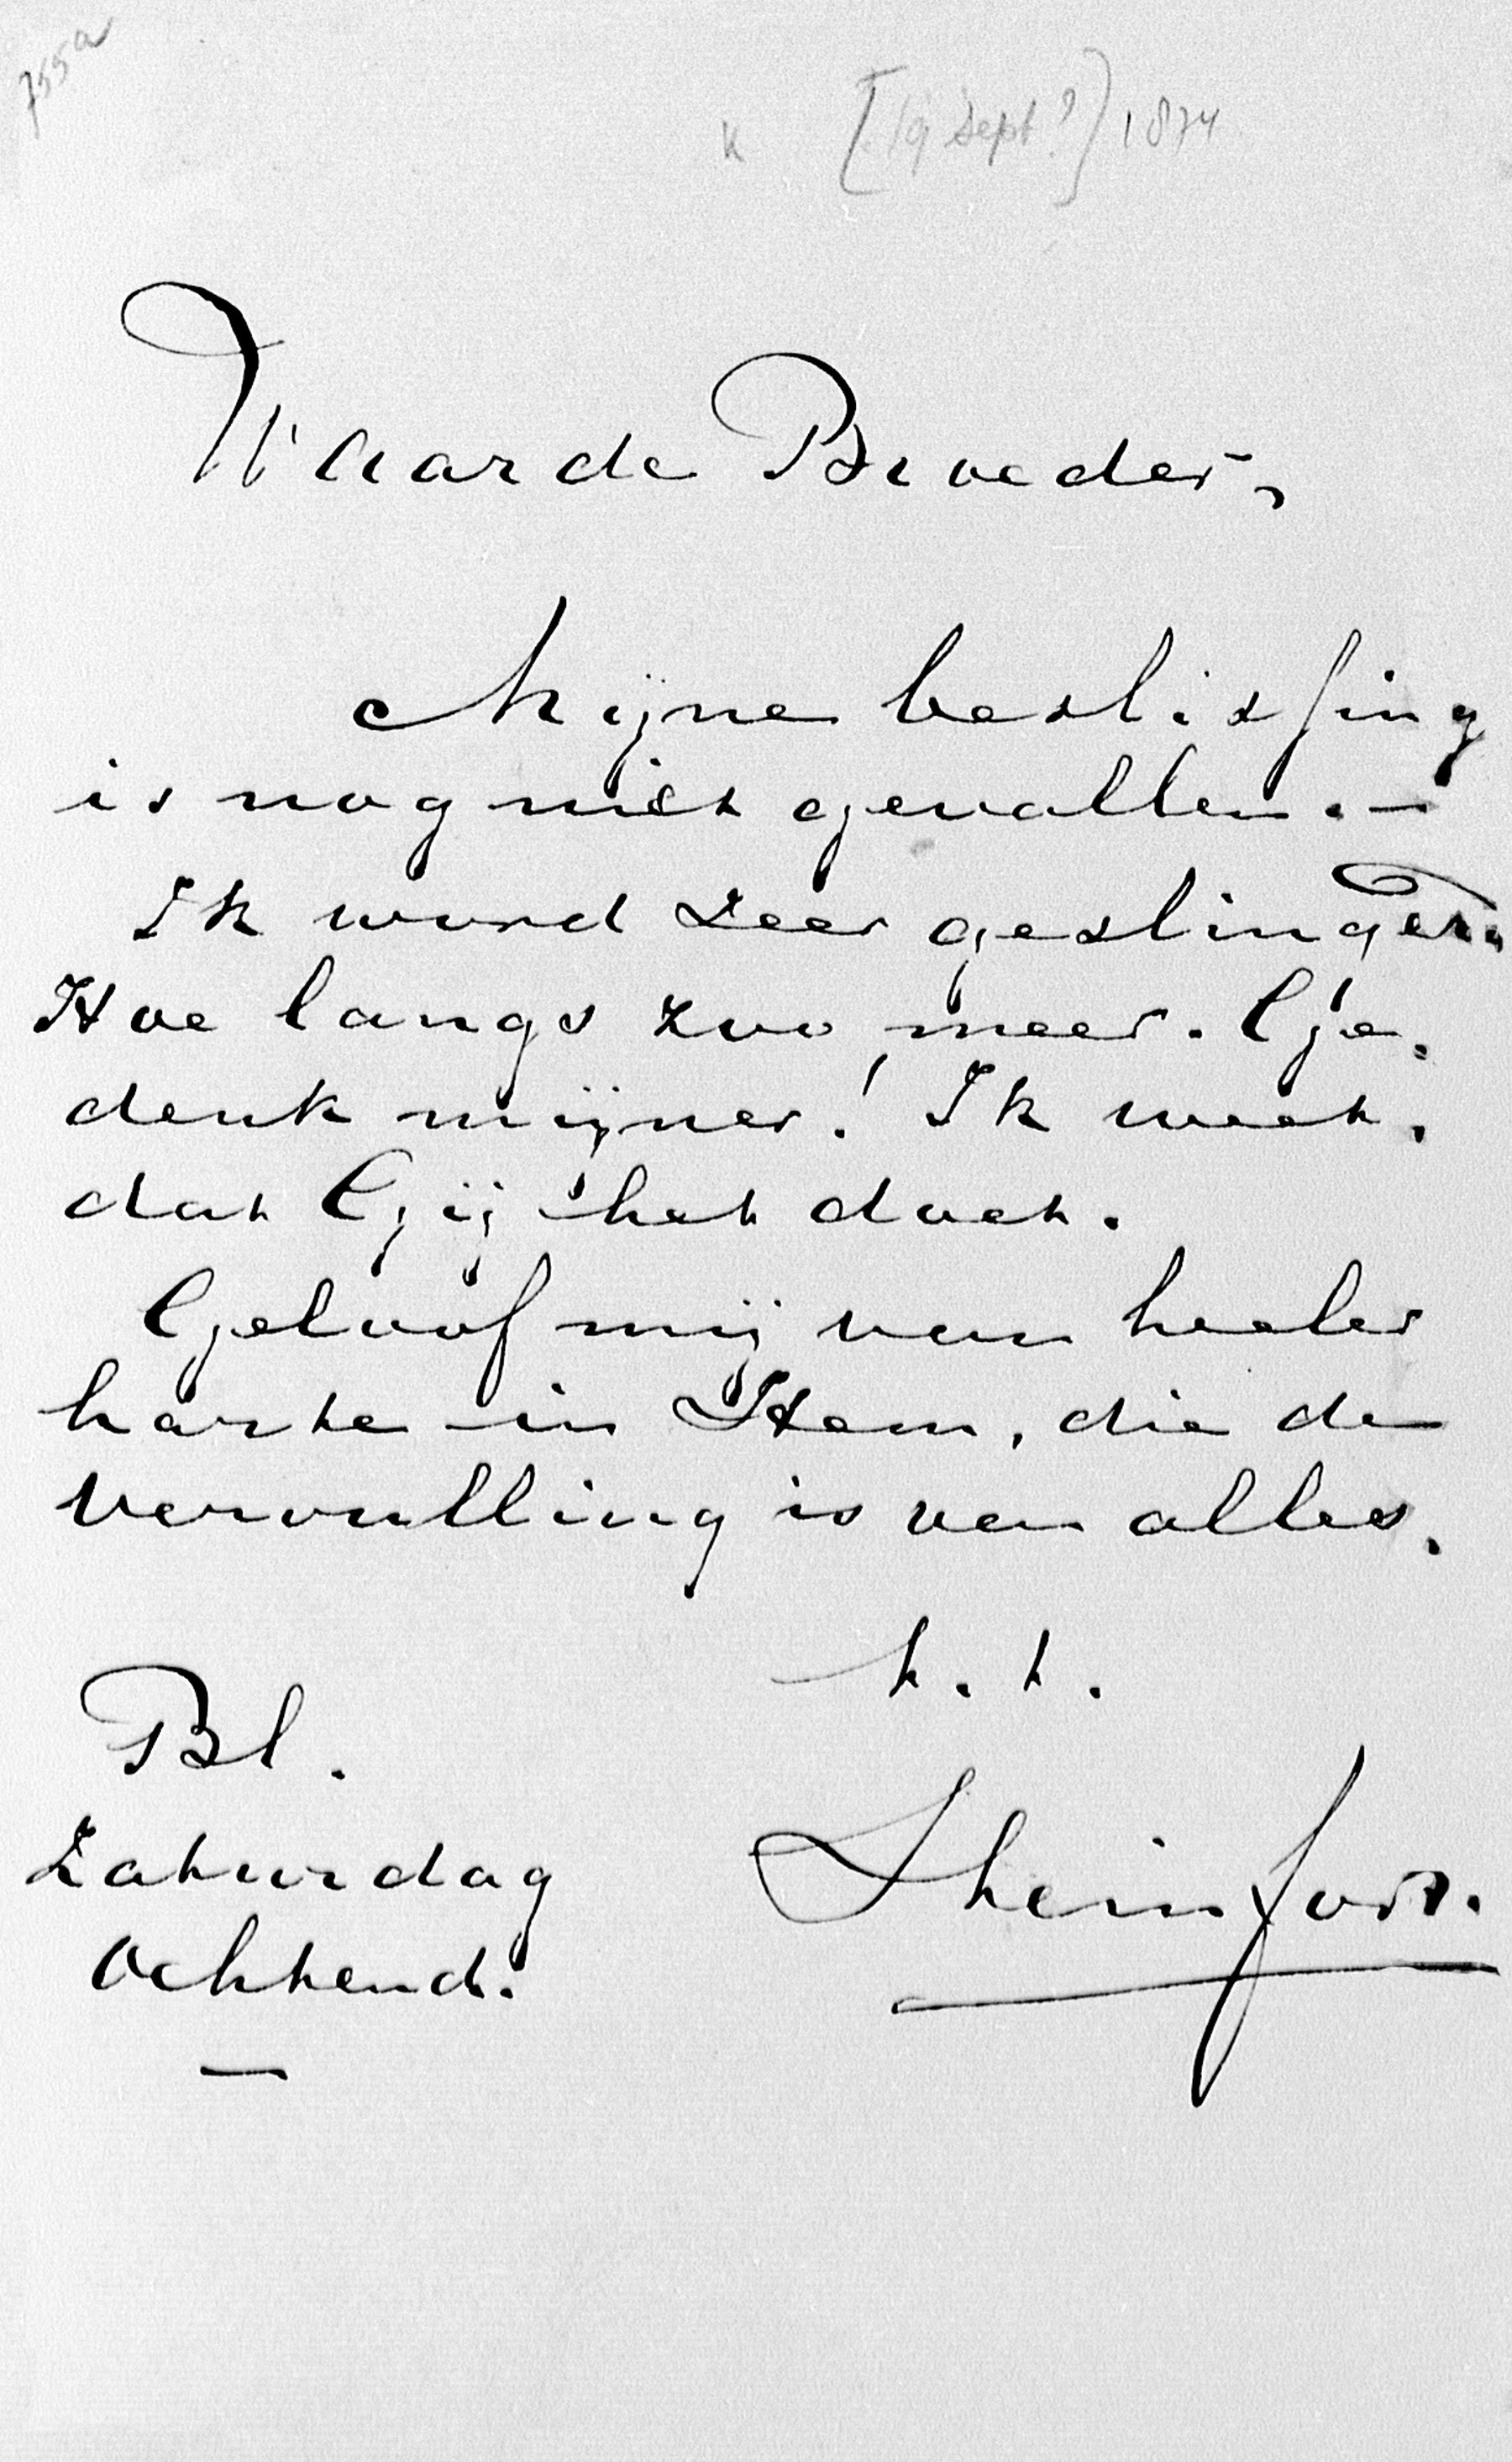 755a
k [19 Sept?] 1874
Waarde Broeder,
Mijne beslissing
is nog niet gevallen. —
Ik word zeer geslingerd.
Hoe langs zoo meer. Ge-
denk mijner! Ik weet,
dat Gij het doet.
Geloof mij van heeler
harte in Hem, die de
vervulling is van alles.
t. t.
Bl.
Zaturdag
Ochtend.
—